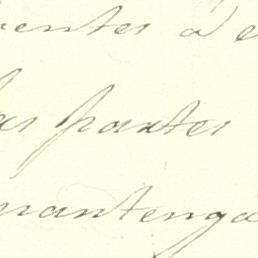 rentes a e
las partes
mantenga